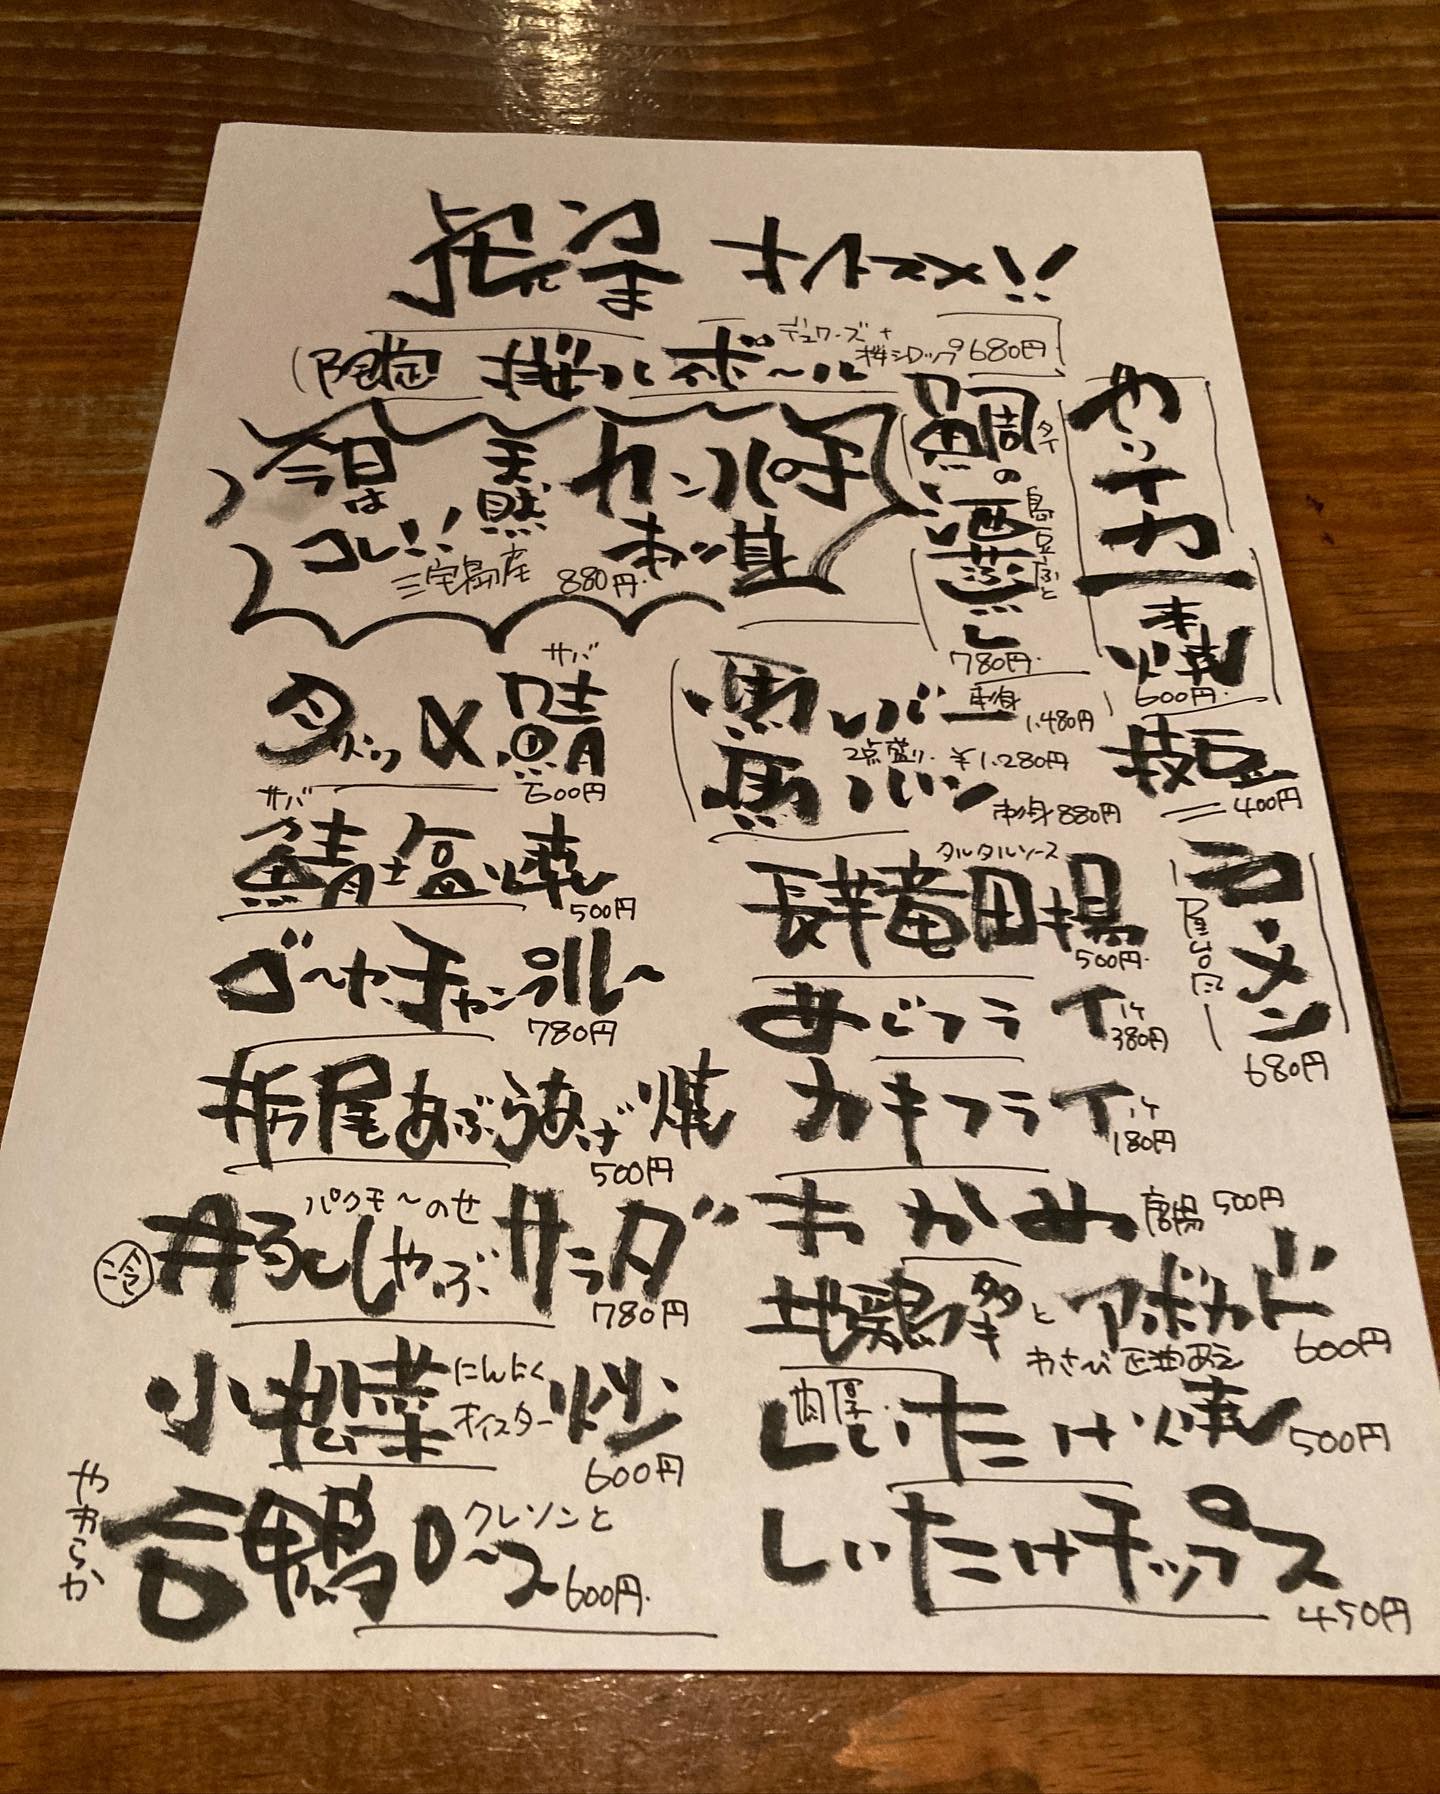 オススメ!!
限定 桜ハイボール デュワーズ+桜シロップ 680円
今日はコレ!! 天然 カンパチ 刺身
三宅島産 880円
鯛の酒蒸し タイ 島豆ふと
780円
やッイカ一本焼
600円
枝豆
400円
屋台风ラーメン
680円
鯖 サバ
600円
サバ
鯖塩焼
500円
ゴーヤーチャンプルー
780円
栃尾あぶらあげ焼
500円
パクチーのせ
冷 豚しゃぶサラダ
780円
小松菜 にんにくオイスター炒
600円
やわらか 合鴨ロース クレソンと
600円
馬レバー 刺身 1,480円
2点盛り ¥1,280円
馬ハツ 刺身 880円
タルタルソース
長芋竜田揚
500円
あじフライ 1ケ
380円
カキフライ 1ケ
180円
わかめ 唐揚 500円
地鶏 とアボカド
わさび正油あえ 600円
肉厚 しいたけ焼
500円
しいたけチップス
450円